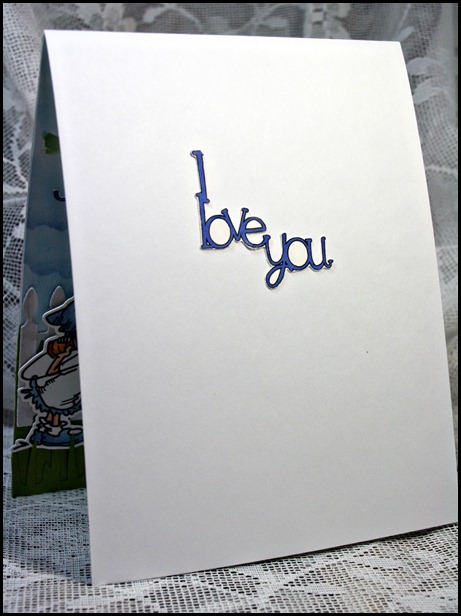 I
love
you.